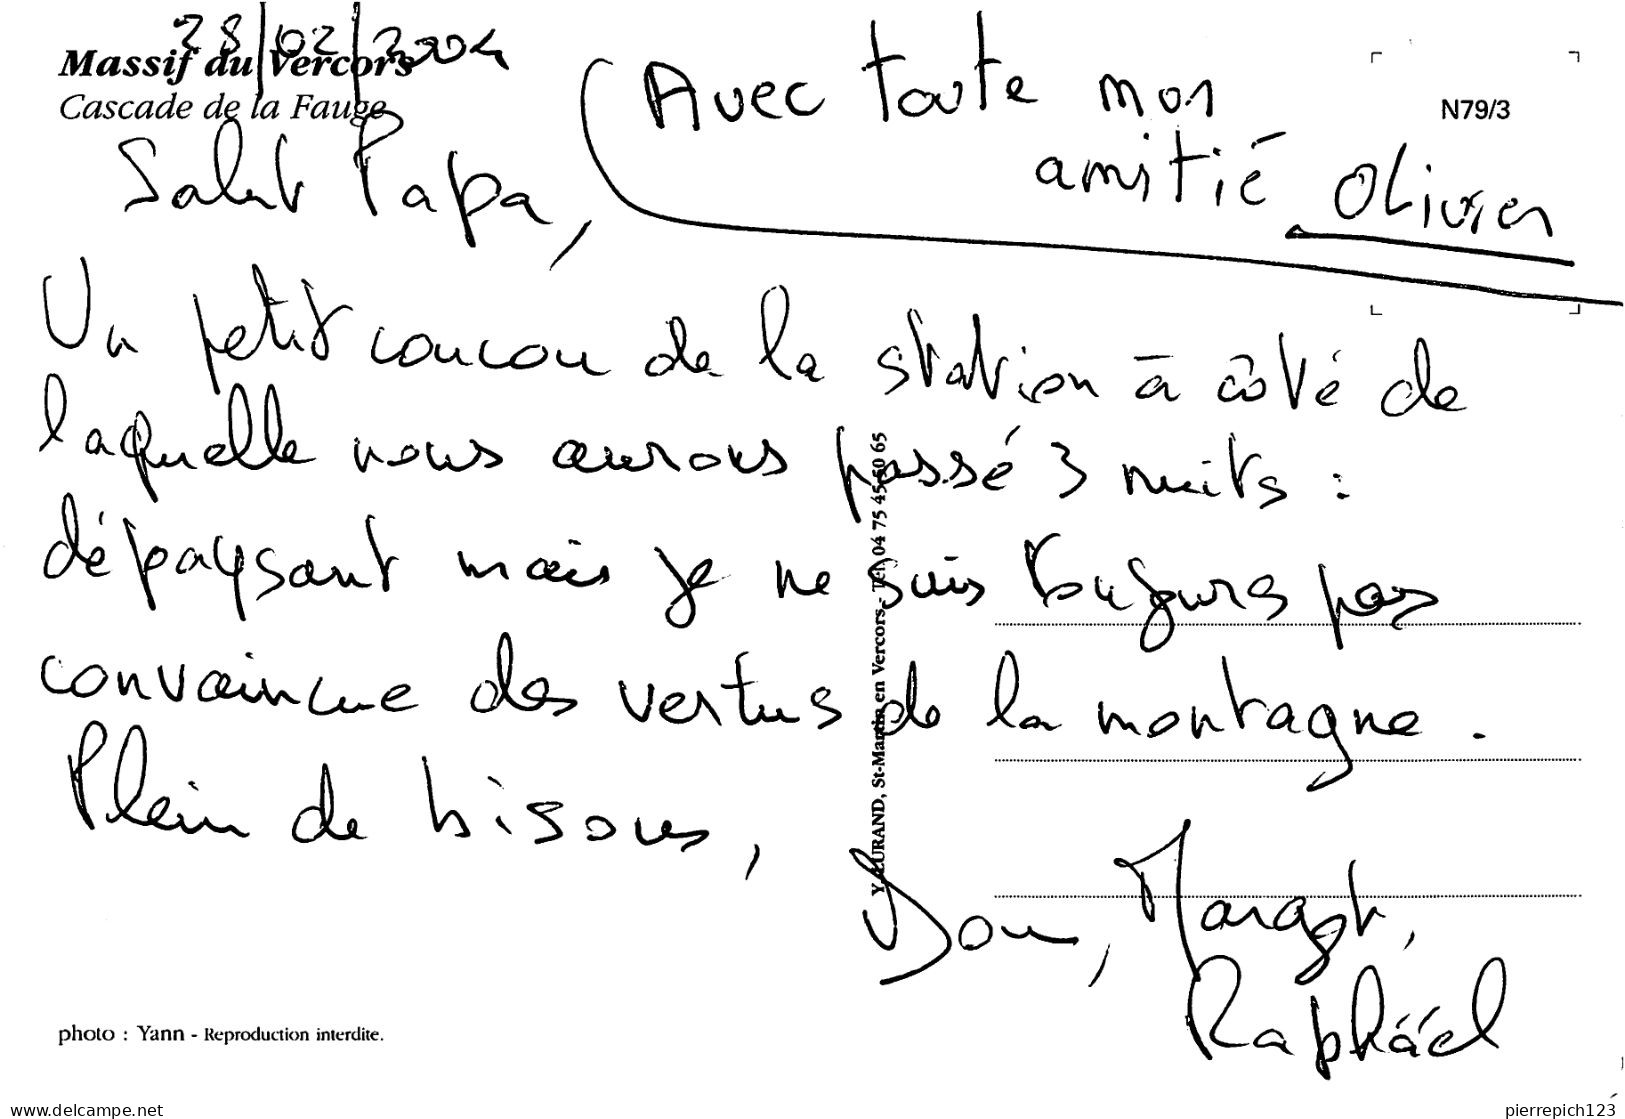 28/02/2004
Massif du Vercors
Cascade de la Fauge
N79/3
Avec toute mon
amitié Olivier
Salut Papa,
Un petit coucou de la station à côté de
laquelle nous aurons passé 3 nuits :
dépaysant mais je ne suis toujours pas
convaincue des vertus de la montagne.
Plein de bisous,
Margot,
Raphaël
Y. DURAND, St-Martin en Vercors - Tél. 04 75 45 50 65
photo : Yann - Reproduction interdite.
www.delcampe.net
pierrepich123